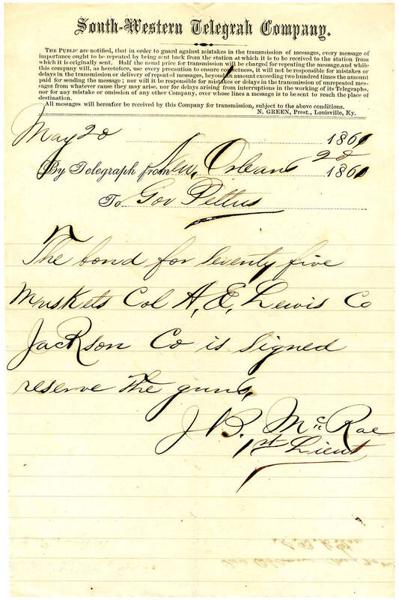 South-Western Telegrah Company.
THE PUBLIC are notified, that in order to guard against mistakes in the transmission of messages, every message of
importance ought to be repeated by being sent back from the station at which it is to be received to the station from
which it is originally sent. Half the usual price for transmission will be charged for repeating the message, and while
this company will, as heretofore, use every precaution to ensure correctness, it will not be responsible for mistakes or
delays in the transmission or delivery of repeated messages, beyond an amount exceeding two hundred times the amount
paid for sending the message; nor will it be responsible for mistakes or delays in the transmission of unrepeated mes-
sages from whatever cause they may arise, nor for delays arising from interruptions in the working of its Telegraphs,
nor for any mistake or omission of any other Company, over whose lines a message is to be sent to reach the place of
destination.
All messages will hereafter be received by this Company for transmission, subject to the above conditions.
N. GREEN, Prest., Louisville, Ky.
May 22 1861
By Telegraph from New Orleans 22 1861
To Gov Pettus
The bond for Seventy five
Muskets Col A, E, Lewis Co
Jackson Co is signed
reserve the guns,
J B, McRae
1st Lieut